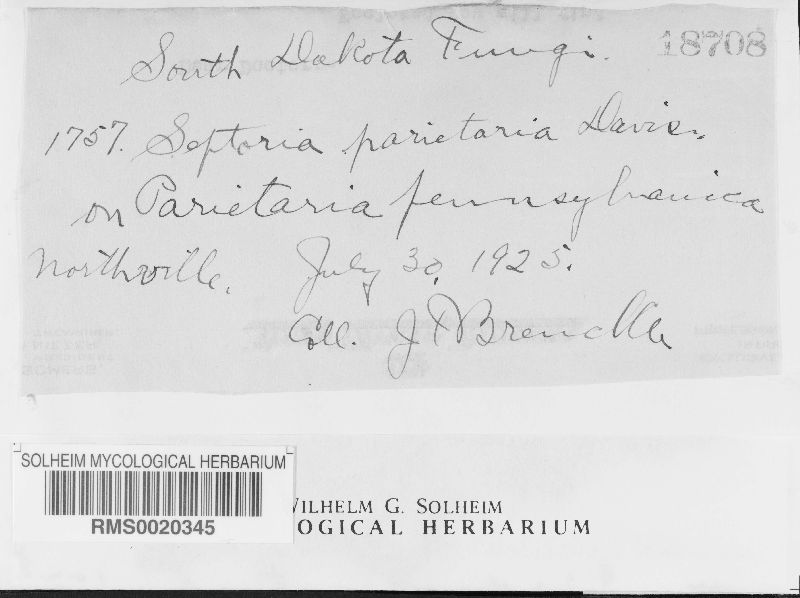 South Dakota Fungi. 18708
1757. Septoria parietaria Davis.
on Parietaria pennsylvanica
Northville. July 30, 1925.
Coll. J F Brenckle
SOLHEIM MYCOLOGICAL HERBARIUM
RMS0020345
WILHELM G. SOLHEIM
OGICAL HERBARIUM